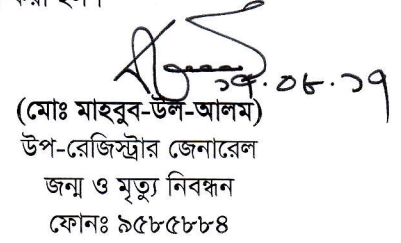 ১৭.০৮.১৭
(মোঃ মাহবুব-উল-আলম)
উপ-রেজিস্ট্রার জেনারেল
জন্ম ও মৃত্যু নিবন্ধন
ফোনঃ ৯৫৮৫৮৮৪